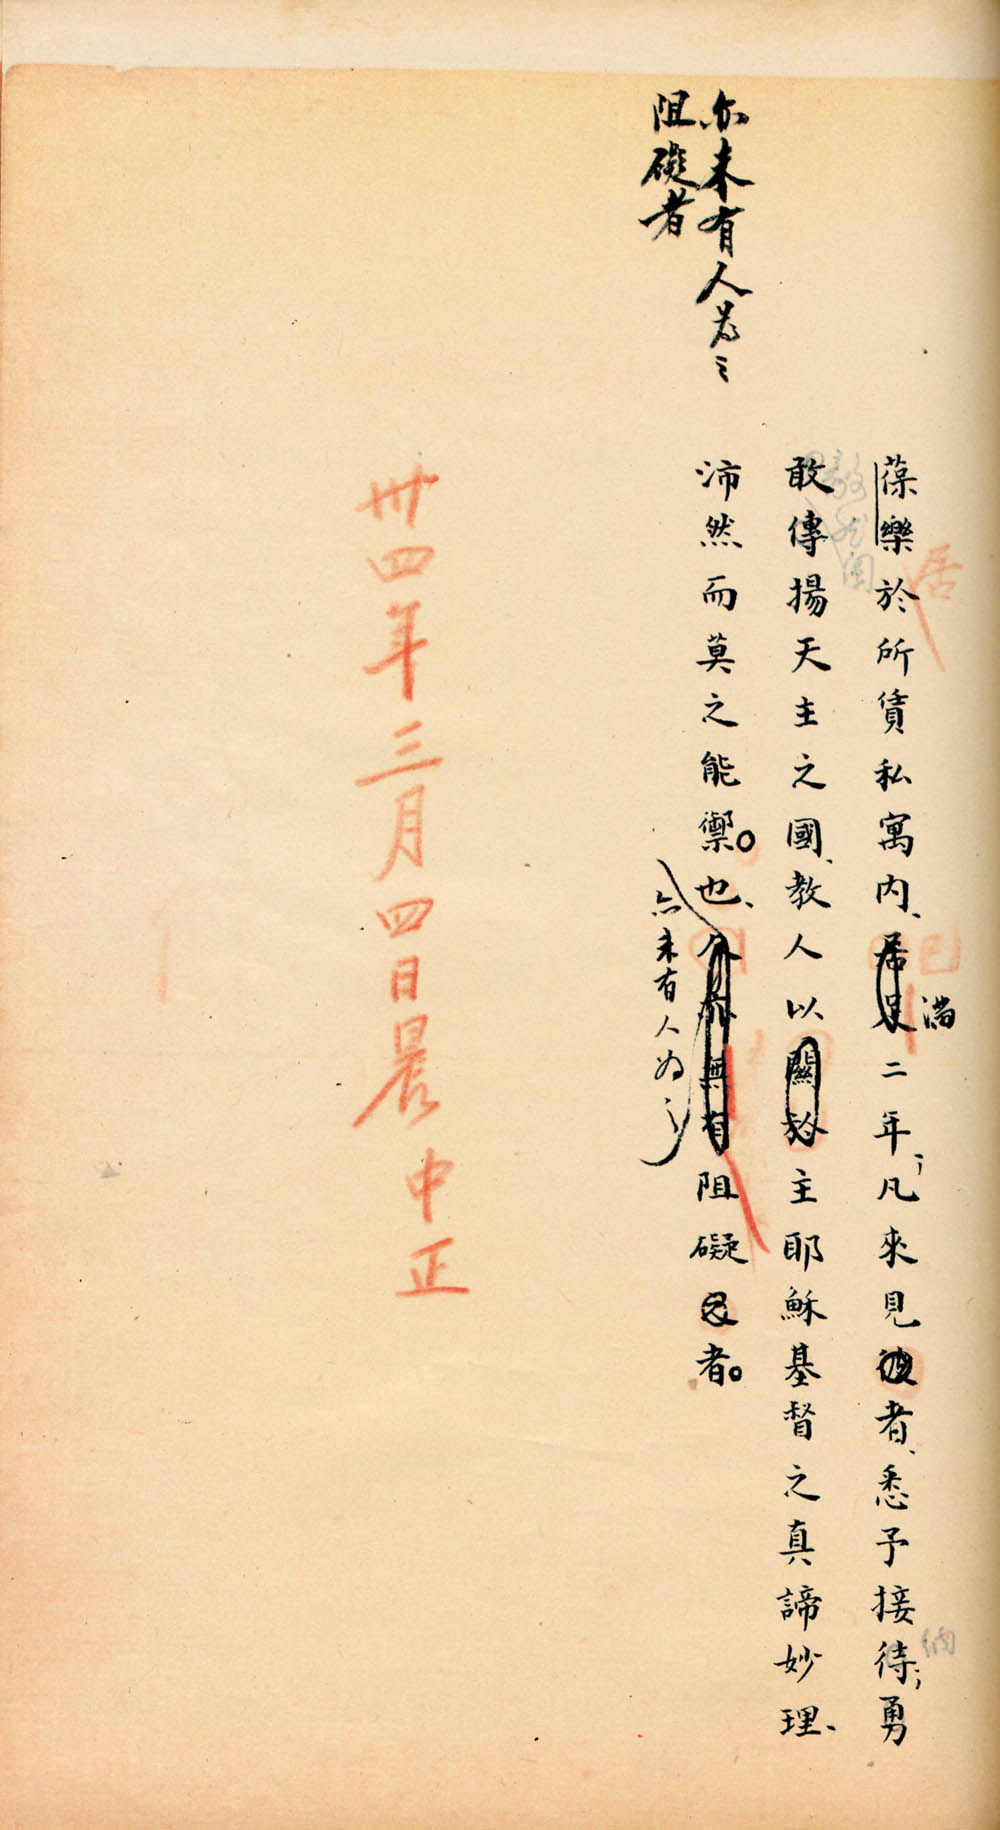 葆樂於所賃私寓内、居足二年、凡來見彼者、悉予接待；勇
居
滿
納
敢傳揚天主之國、教人以關於主耶穌基督之真諦妙理、
沛然而莫之能禦。也、亦無有阻礙之者。
亦未有人為之
亦未有人為之
阻礙者
卅四年三月四日晨 中正